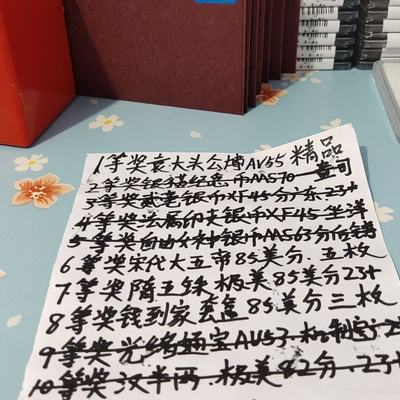 1等奖袁大头公博AU55精品
2等奖银猫纪念币MS70一盎司
3等奖贰毫银币XF45分广东23+
4等奖法属印支银币XF45坐洋
5等奖自由女神银币MS63分
6等奖宋代大五帝85美分.五枚
7等奖隋五铢极美85美分23+
8等奖钱到家盒85美分三枚
9等奖光绪通宝AU53.机制
10等奖汉半两.极美82分.23+